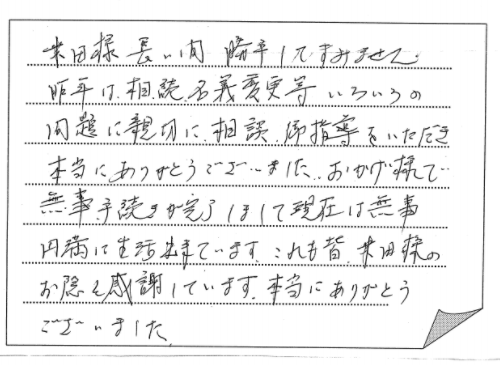 米田様 長い間 勝手してすみません.
昨年は、相続、名義変更等 いろいろの
問題に親切に、相談、御指導をいただき
本当に、ありがとうございました、おかげ様で
無事、手続きが完了しまして現在は無事
円満に生活出来ています。これも皆、米田様の
お陰と感謝しています。本当にありがとう
ございました。